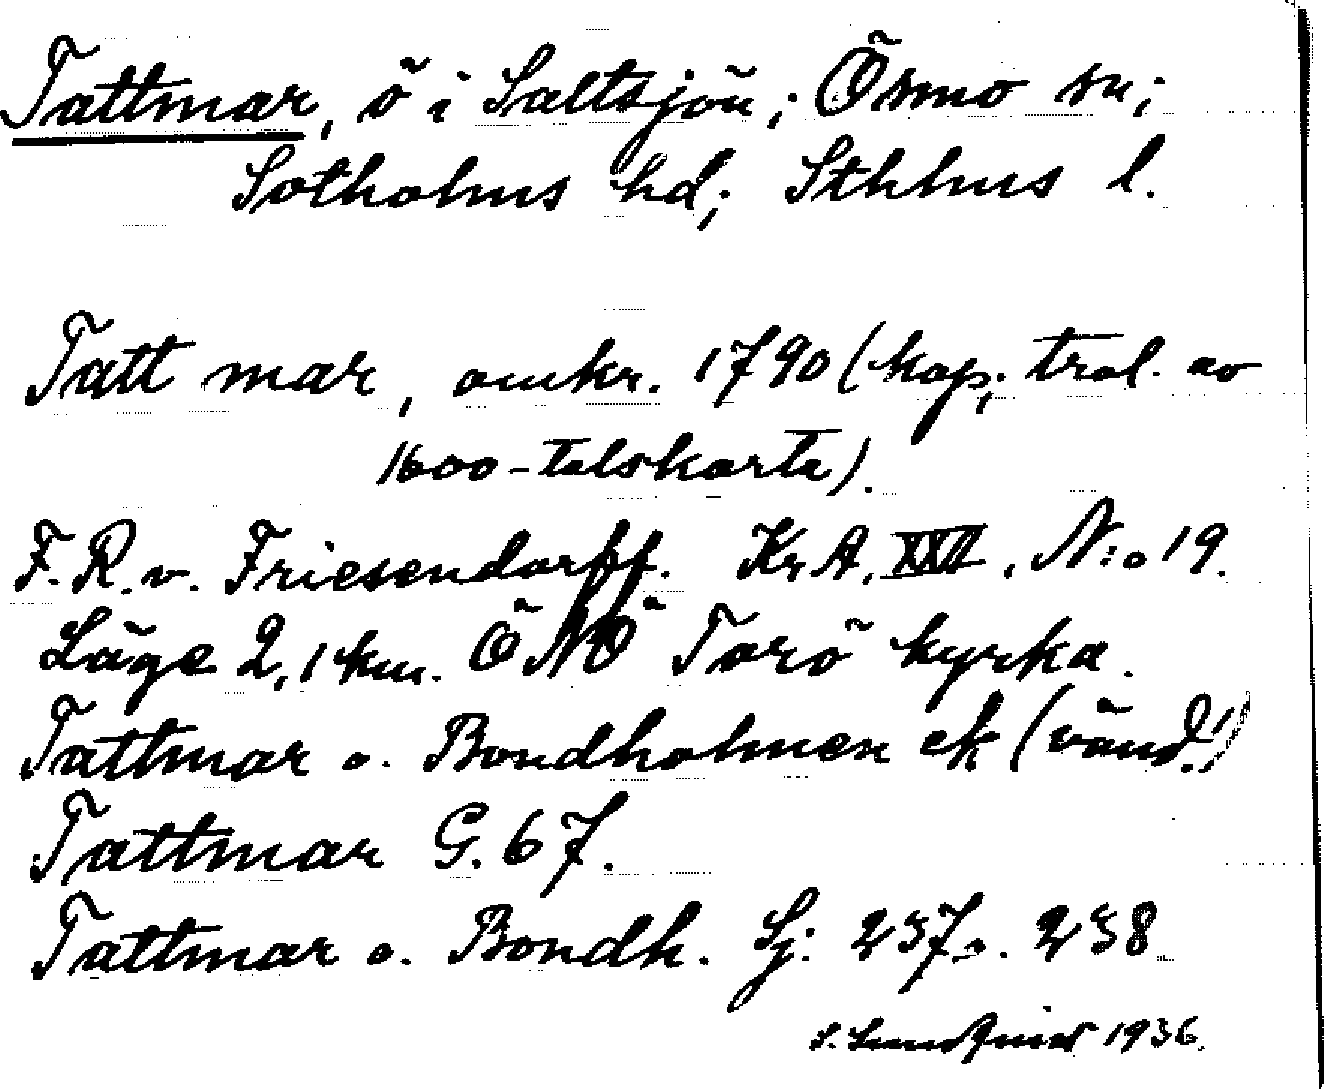 Tattmar, ö i Saltsjön; Ösmo sn;
Sotholms hd; Sthlms l.
Tatt mar, omkr. 1790 (kop; trol. av
1600-talskarta).
F. R. v. Friesendorff. Kr. A. XXII, N:o 19.
Läge 2,1 km. ÖNÖ Torö kyrka.
Tattmar o. Bondholmen ek (vänd!)
Tattmar G. 67.
Tattmar o. Bondh. Sj: 237 o. 238
S. Lundquist 1936.